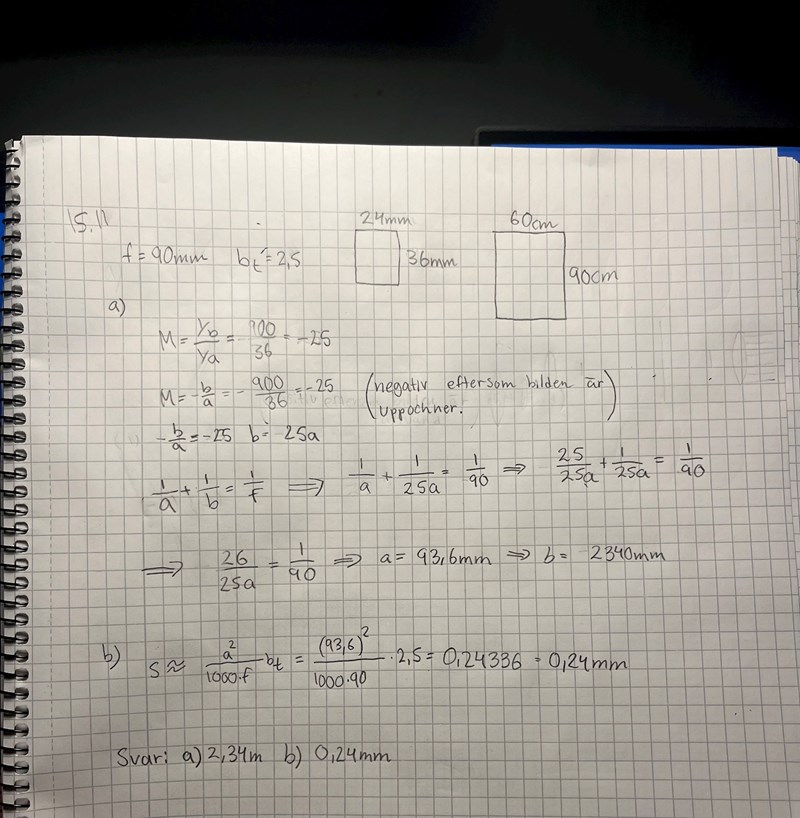 15.11
24mm 60cm
f = 90mm bt = 2,5 36mm 90cm
a)
M = yb/ya = 900/36 = -25
M = -b/a = -900/36 = -25 (negativ eftersom bilden är
uppochner.)
-b/a = -25 b = 25a
1/a + 1/b = 1/f ⟹ 1/a + 1/25a = 1/90 ⟹ 25/25a + 1/25a = 1/90
⟹ 26/25a = 1/90 ⟹ a = 93,6mm ⟹ b = 2340mm
b) s ≈ a²/1000·f bt = (93,6)²/1000·90 · 2,5 = 0,24336 = 0,24mm
Svar: a) 2,34m b) 0,24mm